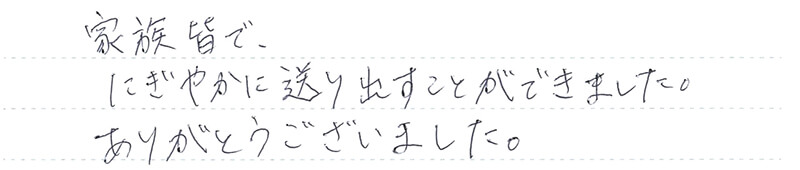 家族皆で、
にぎやかに送り出すことができました。
ありがとうございました。